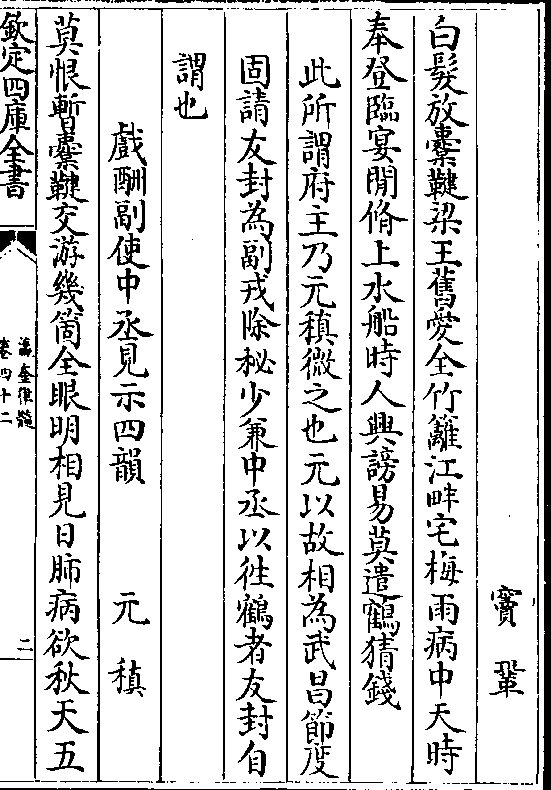 竇鞏
白髮放櫜鞬梁王舊愛全竹籬江畔宅梅雨病中天時
奉登臨宴閒脩上水船時人興謗易莫遣鶴猜錢
此所謂府主乃元稹微之也元以故相為武昌節度
固請友封為副戎除秘少兼中丞以徃鶴者友封自
謂也
戲酬副使中丞見示四韻 元稹
莫恨暫櫜鞬交游幾箇全眼明相見日肺病欲秋天五
欽定四庫全書
瀛奎律髓
卷四十二
二